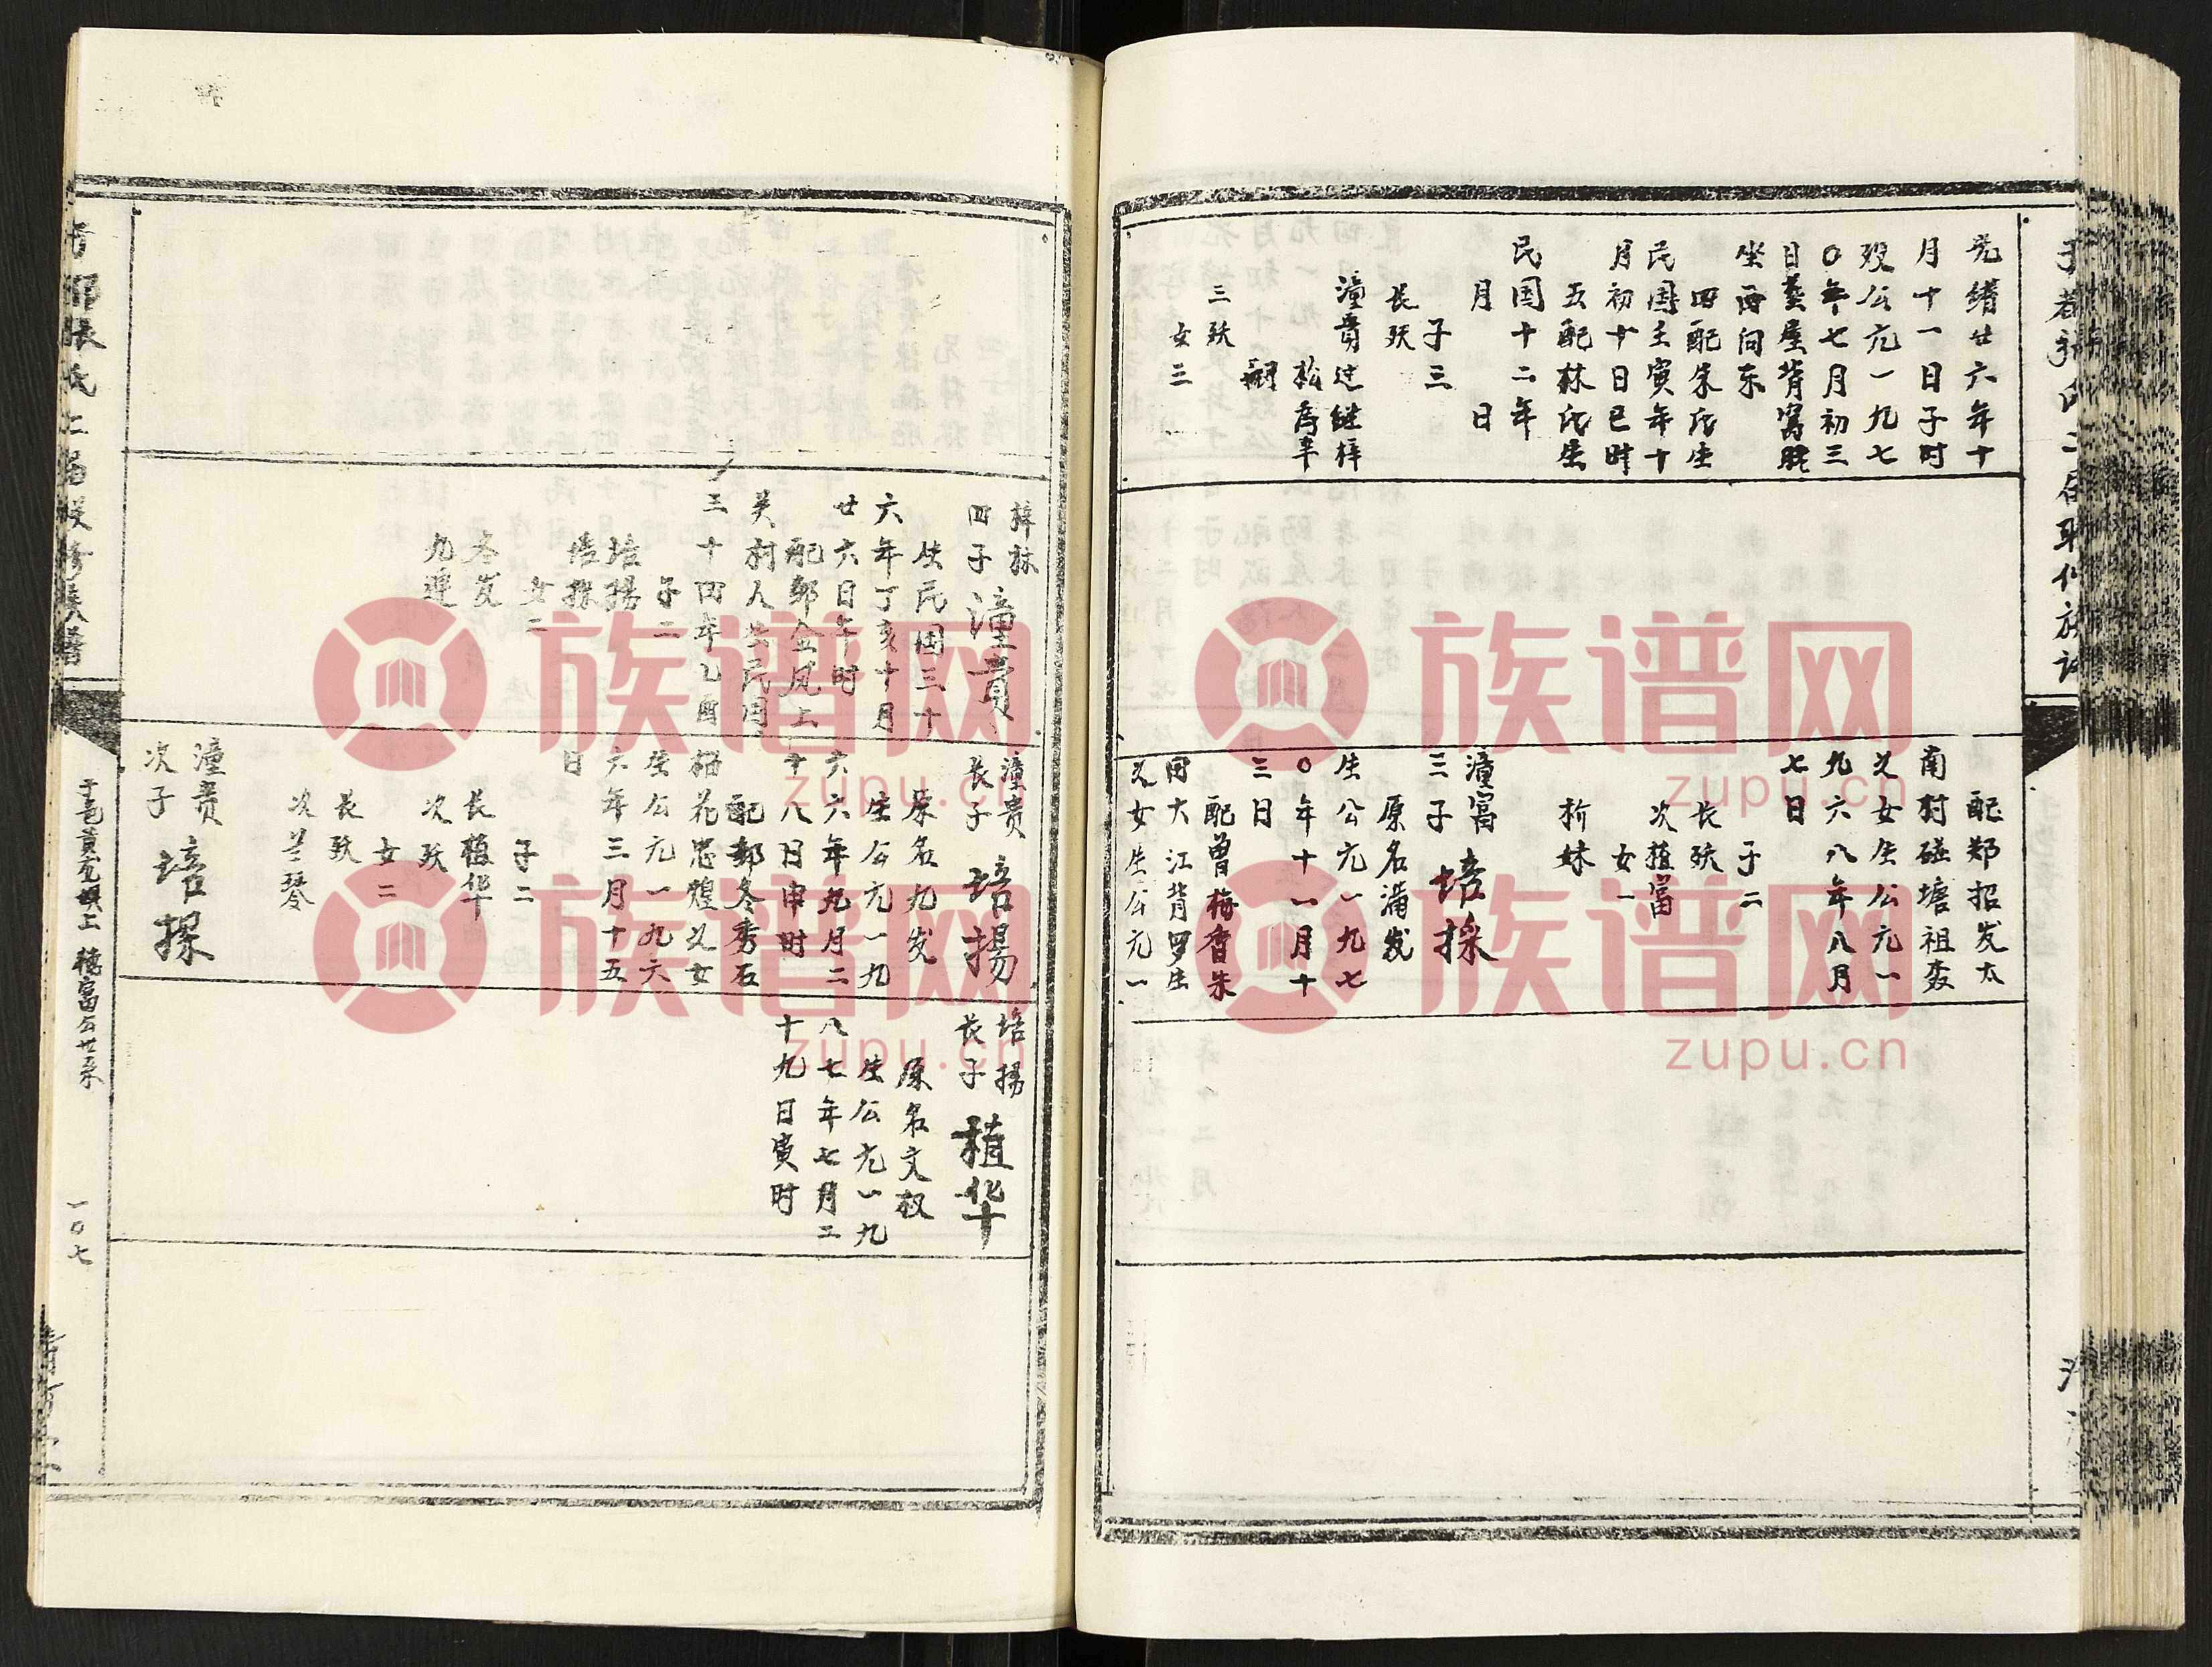 光绪廿六年十
月十一日子时
殁公元一九七
〇年七月初三
日葬屋背窝
坐西向东
四配朱氏生
民国壬寅年十
月初十日巳时
五配林氏生
民国十二年
月 日
子三
长殀
潼贵过继梓
松为
嗣
三殀
女三
配郑招发太
南村碰塘祖
女生公元一
九六八年八月
七日
子二
长殀
次植富
女一
妹
潼富
三子 培採
原名满发
生公元一九七
〇年十一月十
三日
配曾梅香朱
田大江背罗生
女生公元一
梓林
四子 潼贵
生民国三十
六年丁亥十月
廿六日午时
配郭金凤上
关村人生民国
三十四年乙酉
子二
培揚
培探
女二
冬发
九连
潼贵
长子 培揚
原名九发
生公元一九
六六年九月二
十八日申时
配郭冬秀石
榴花忠煌女
生公元一九六
六年三月十五
日
子二
长植华
次殀
女二
长殀
次兰琴
潼贵
次子 培探
培揚
长子 植华
原名文权
生公元一九
八七年七月二
十九日寅时
一〇七
族谱网
zupu.cn
族谱网
zupu.cn
族谱网
zupu.cn
族谱网
zupu.cn